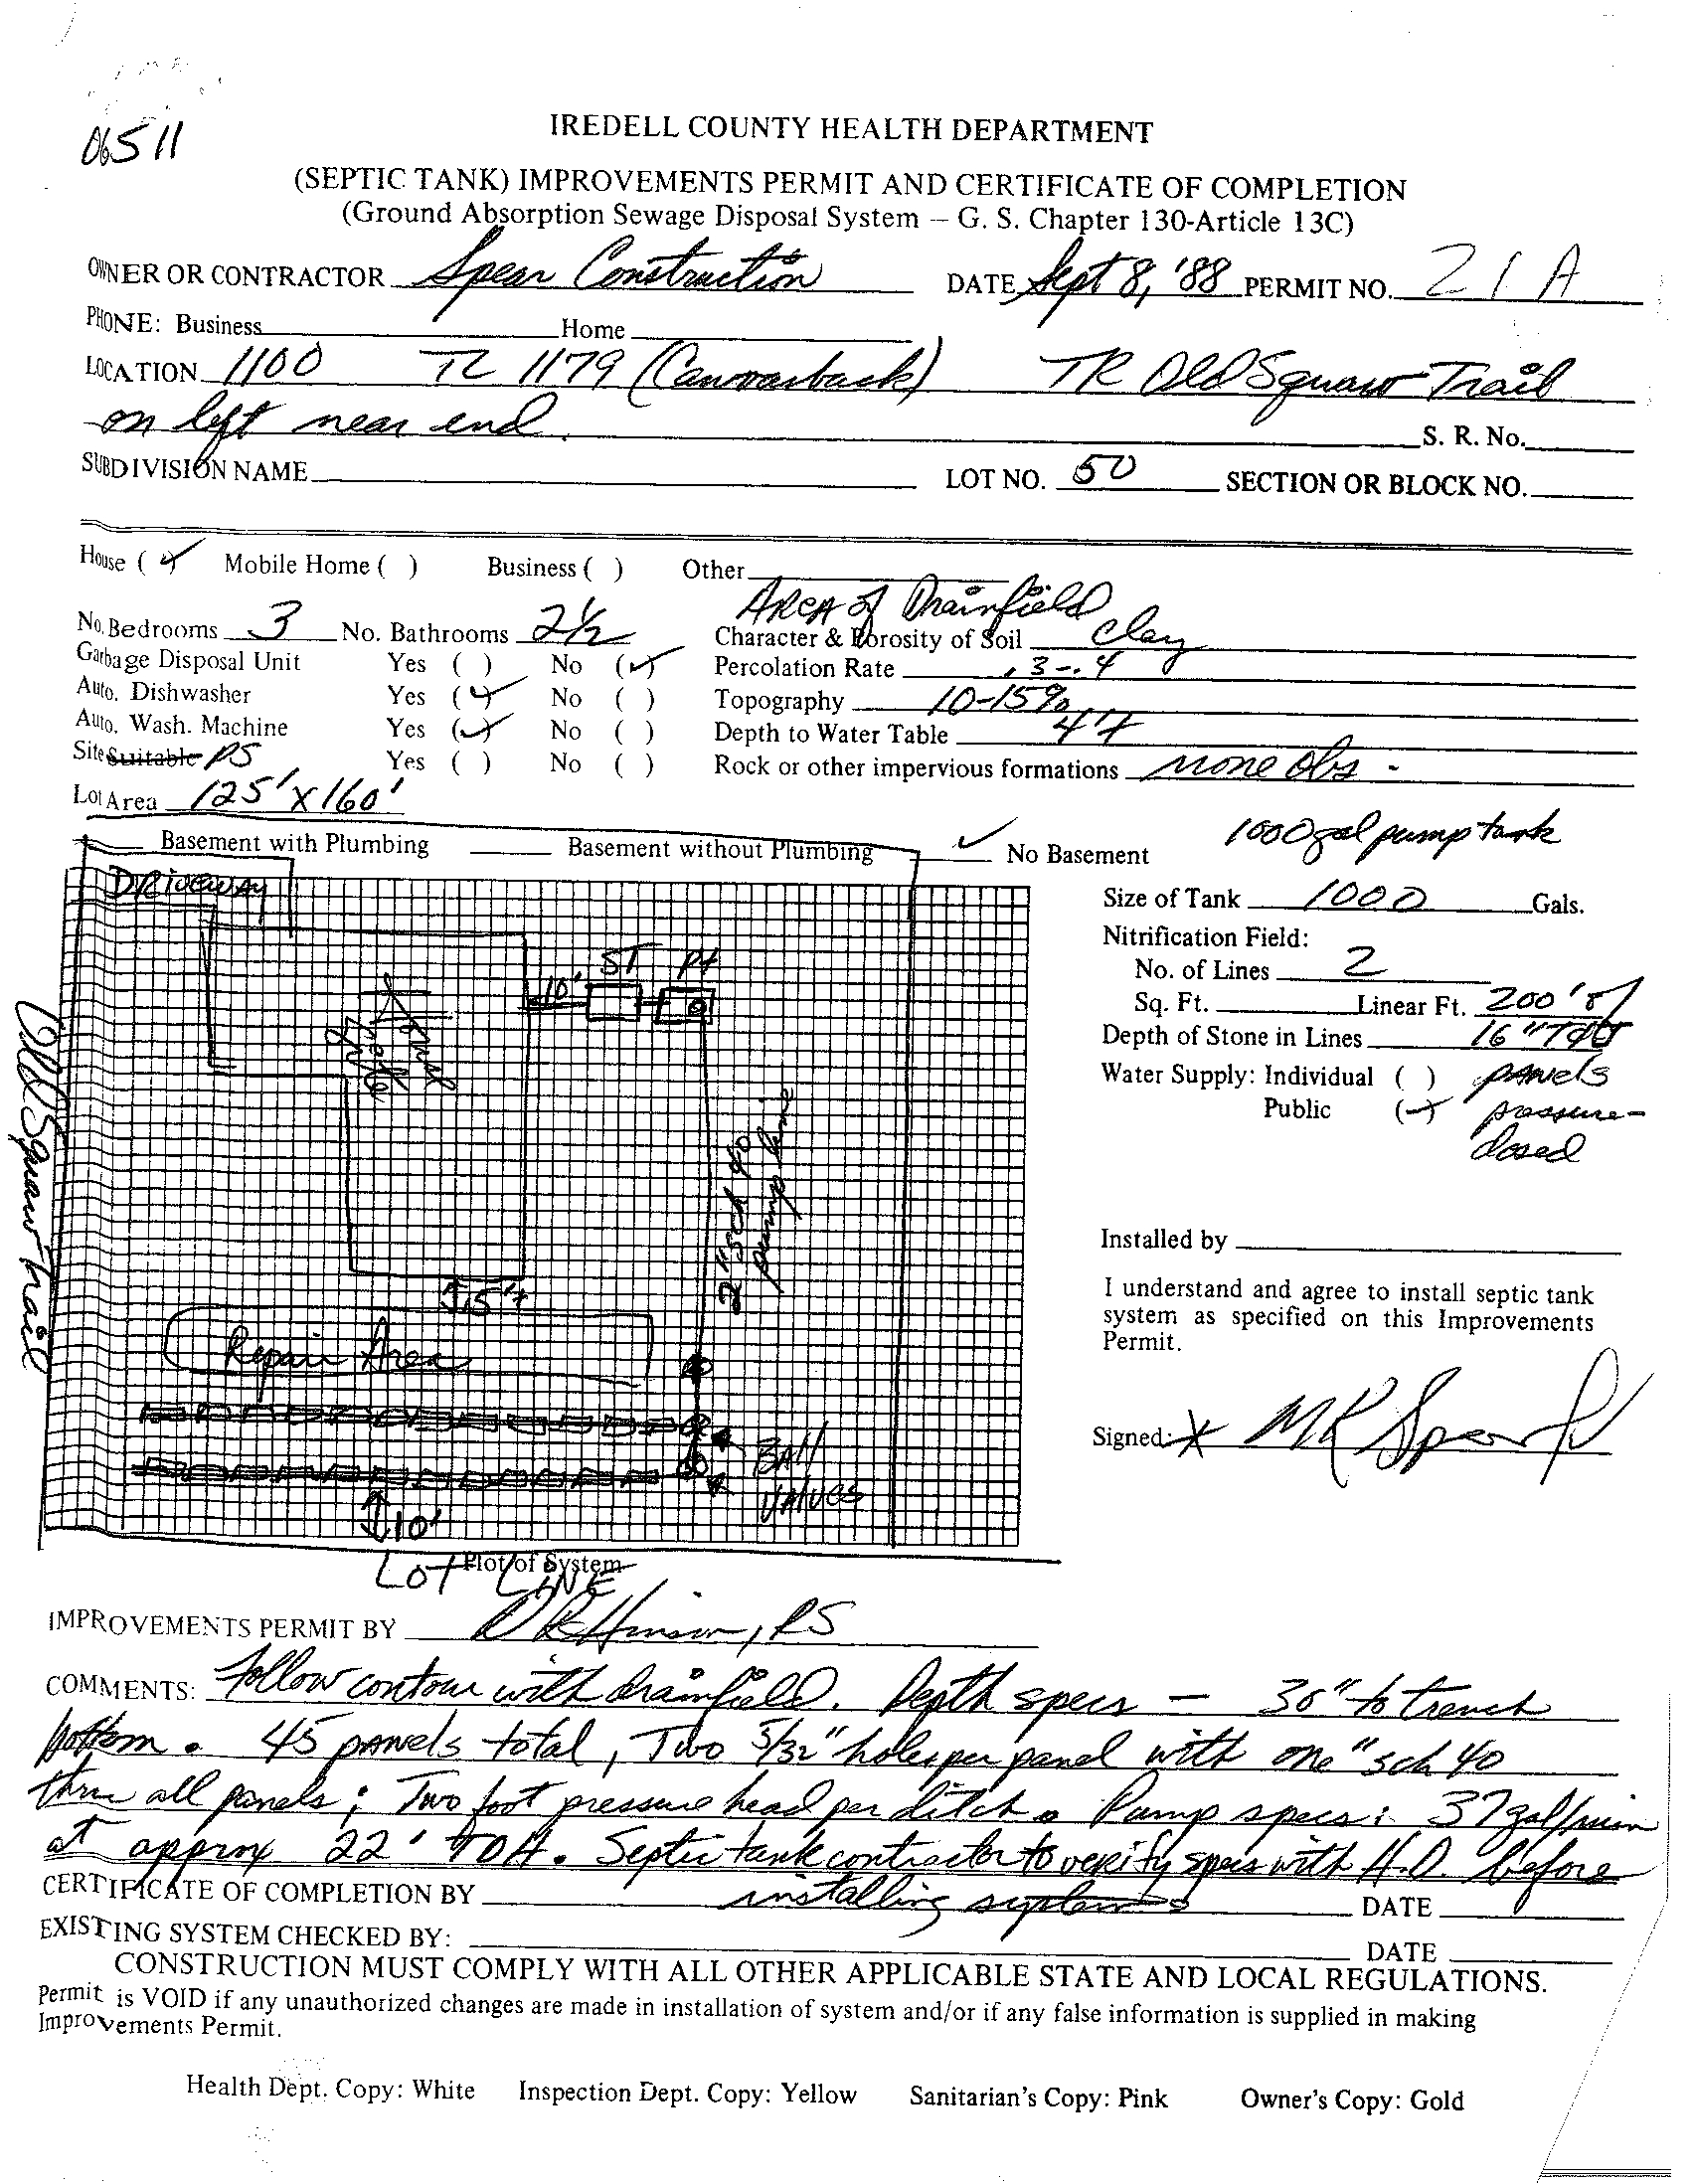 06511
IREDELL COUNTY HEALTH DEPARTMENT
(SEPTIC TANK) IMPROVEMENTS PERMIT AND CERTIFICATE OF COMPLETION
(Ground Absorption Sewage Disposal System – G. S. Chapter 130-Article 13C)
OWNER OR CONTRACTOR Spear Construction DATE Sept 8, '88 PERMIT NO. 21A
PHONE: Business Home
LOCATION 1100 TL 1179 (Canvasback) TR Old Squaw Trail
on left near end. S. R. No.
SUBDIVISION NAME LOT NO. 50 SECTION OR BLOCK NO.
House (✓) Mobile Home ( ) Business ( ) Other
Area of Drainfield
No. Bedrooms 3 No. Bathrooms 2½ Character & Porosity of Soil Clay
Garbage Disposal Unit Yes ( ) No (✓) Percolation Rate .3-.4
Auto. Dishwasher Yes (✓) No ( ) Topography 10-15%
Auto. Wash. Machine Yes (✓) No ( ) Depth to Water Table 4'+
Site Suitable PS Yes ( ) No ( ) Rock or other impervious formations none obs.
Lot Area 125' x 160'
Basement with Plumbing Basement without Plumbing ✓ No Basement
1000 gal pump tank
DRIVEWAY
Size of Tank 1000 Gals.
Nitrification Field:
No. of Lines 2
Sq. Ft. Linear Ft. 200' of
Depth of Stone in Lines 16"
Water Supply: Individual ( ) panels
Public (✓) pressure-
dosed
10' ST Pt
House
Old Squaw Trail
2" sch 40
pump line
15'+
Repair Area
Ball
Valves
10'
Lot Line
Plot of System
Installed by
I understand and agree to install septic tank
system as specified on this Improvements
Permit.
Signed: X MK Spear Jr
IMPROVEMENTS PERMIT BY RS
COMMENTS: Follow contour with drainfield. Depth specs – 30" to trench
bottom. 45 panels total, Two 5/32" holes per panel with one" sch 40
thru all panels; Two foot pressure head per ditch. Pump specs: 37 gal/min
at approx 22' TDH. Septic tank contractor to verify specs with H.D. before
installing system
CERTIFICATE OF COMPLETION BY DATE
EXISTING SYSTEM CHECKED BY: DATE
CONSTRUCTION MUST COMPLY WITH ALL OTHER APPLICABLE STATE AND LOCAL REGULATIONS.
Permit is VOID if any unauthorized changes are made in installation of system and/or if any false information is supplied in making
Improvements Permit.
Health Dept. Copy: White Inspection Dept. Copy: Yellow Sanitarian's Copy: Pink Owner's Copy: Gold